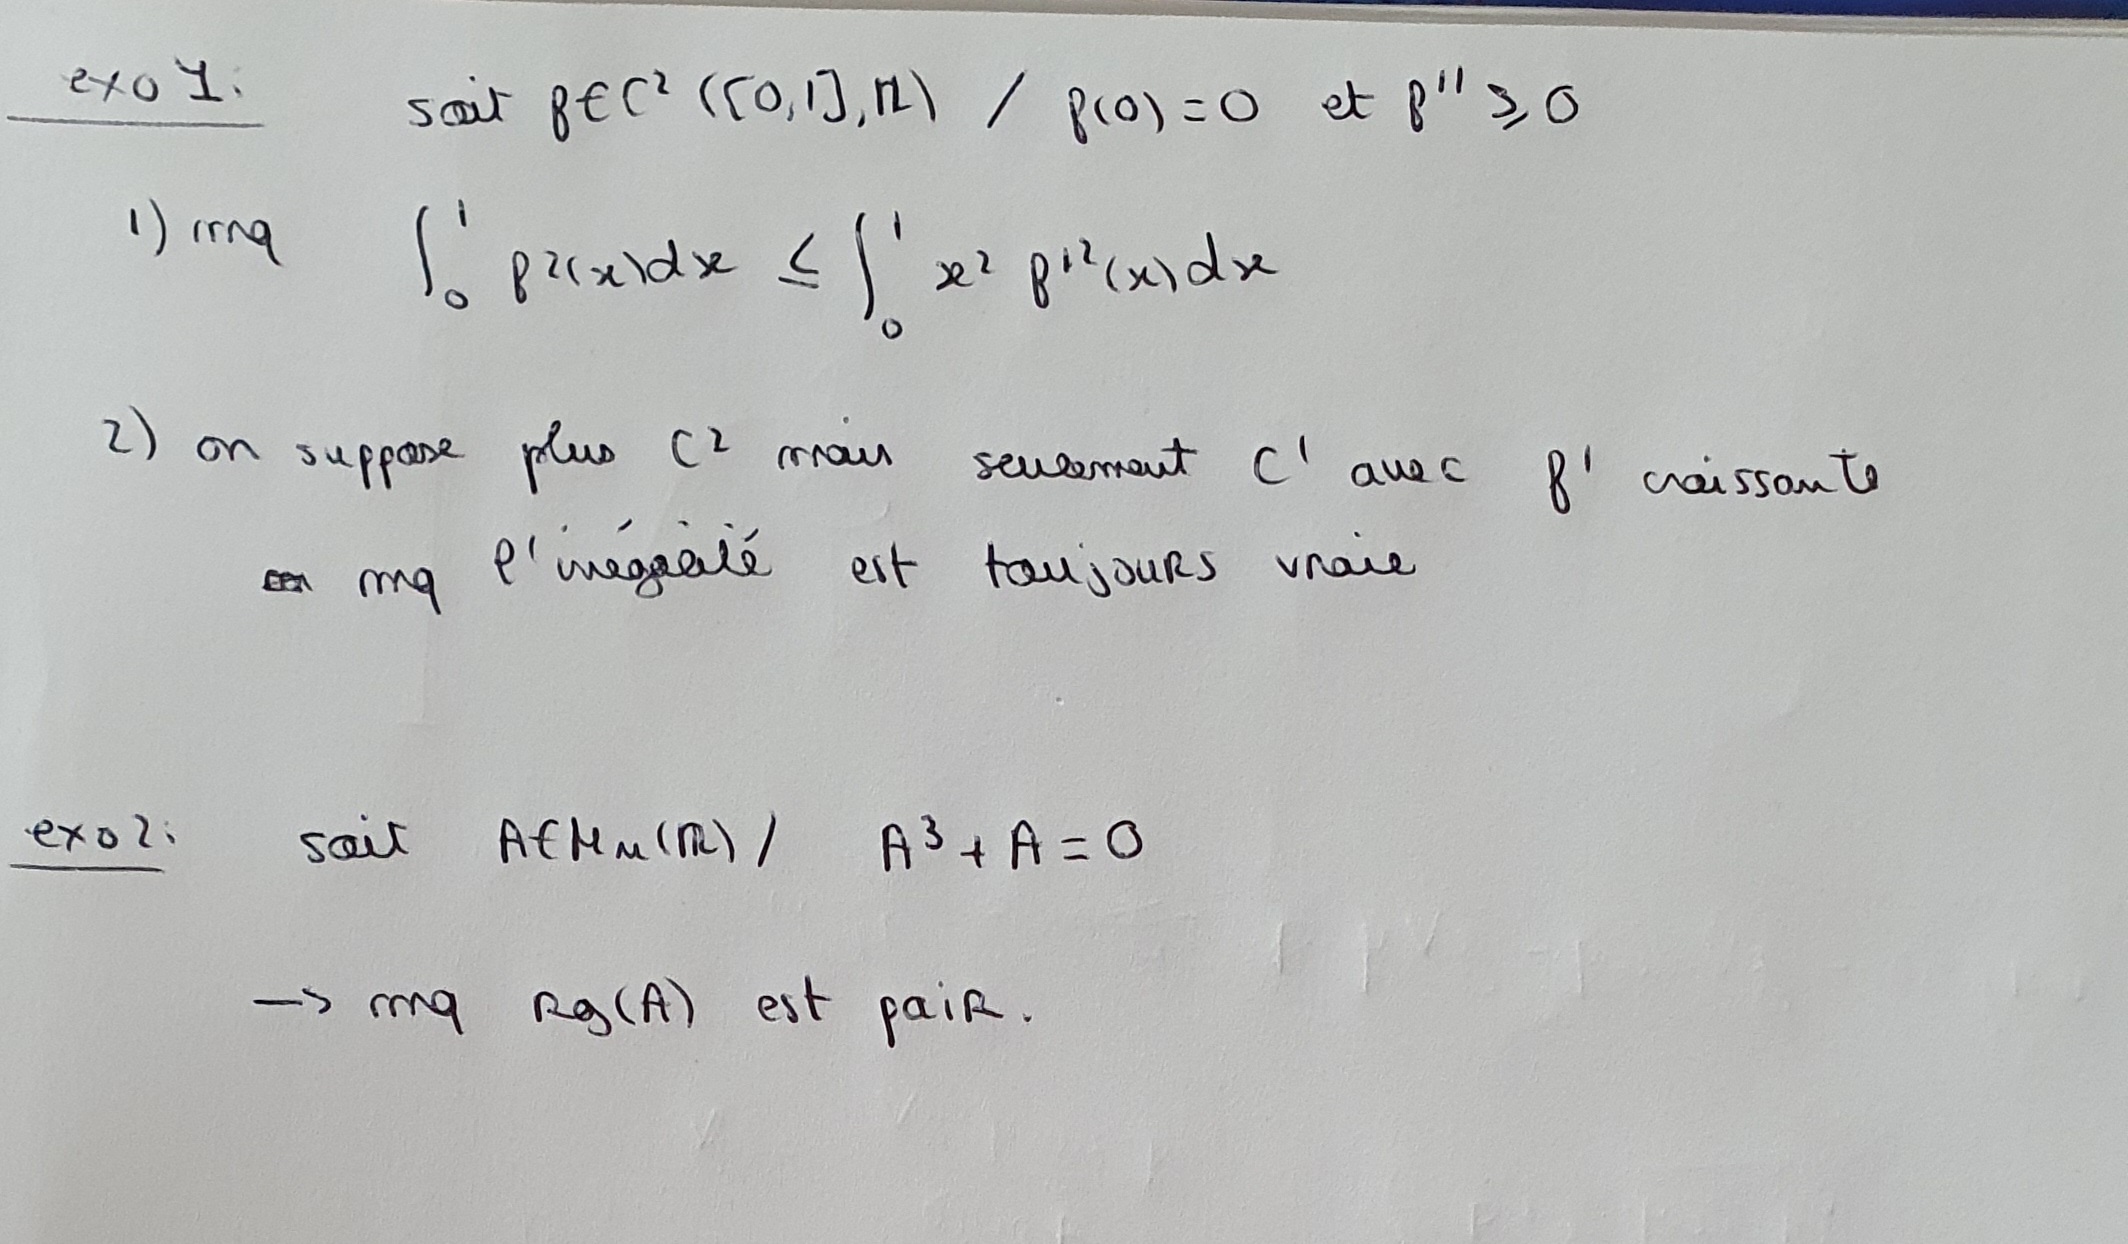 exo 1: soit f∈C² ([0,1],ℝ) / f(0)=0 et f'' ≥ 0
1) mq ∫₀¹ f²(x)dx ≤ ∫₀¹ x² f'²(x)dx
2) on suppose plus C² mais seulement C¹ avec f' croissante
mq l'inégalité est toujours vraie
exo 2: soit A∈Mn(ℝ) / A³ + A = 0
→ mq Rg(A) est pair.